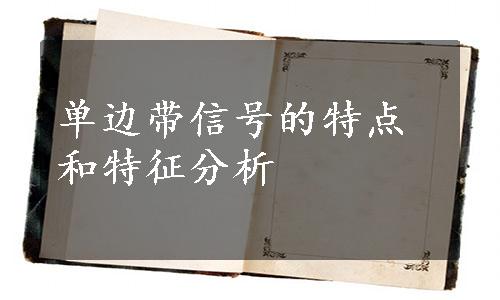 单边带信号的特点
和特征分析